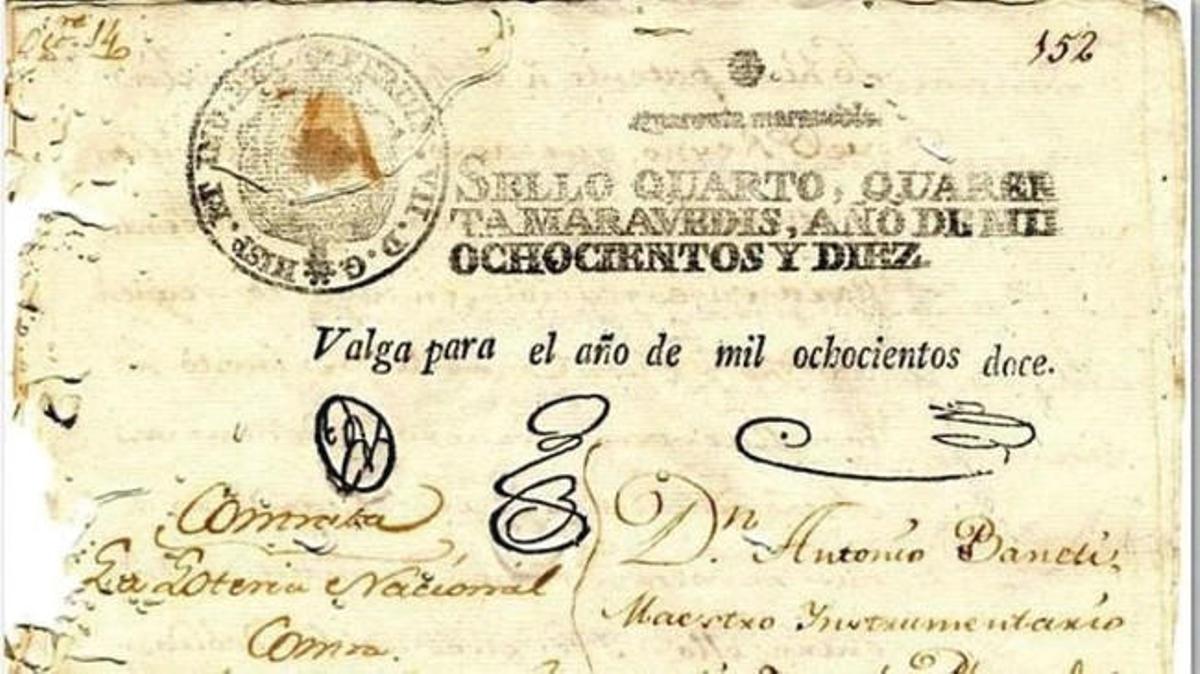 152
Quarenta maravedis.
HISP. ET IND. R. FERDIN. VII. D. G.
SELLO QUARTO, QUAREN
TA MARAVEDIS, AÑO DE MIL
OCHOCIENTOS Y DIEZ.
Valga para el año de mil ochocientos doce.
Contrata
La Loteria Nacional
Con
Dn. Antonio
Maestro Instrumentario